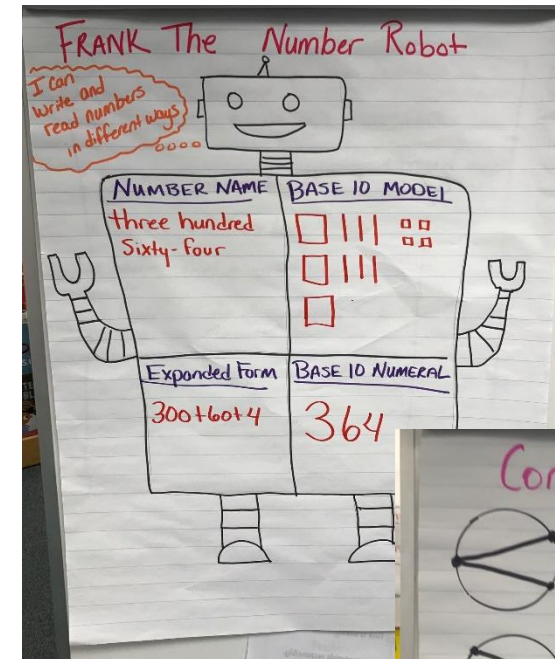 FRANK The Number Robot
I can
write and
read numbers
in different ways
NUMBER NAME
three hundred
Sixty-four
BASE 10 MODEL
Expanded Form
300+60+4
BASE 10 NUMERAL
364